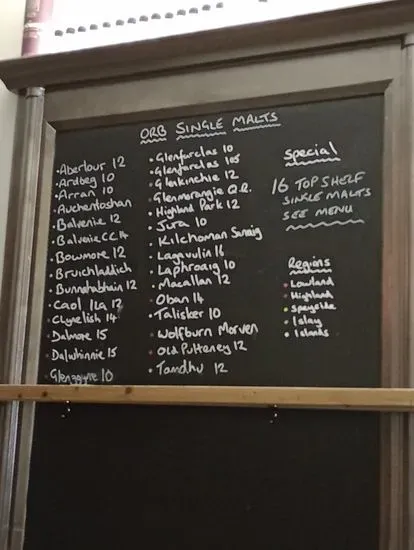 ORB SINGLE MALTS
• Aberlour 12
• Ardbeg 10
• Arran 10
• Auchentoshan
• Balvenie 12
• Balvenie CC 14
• Bowmore 12
• Bruichladdich
• Bunnahabhain 12
• Caol Ila 12
• Clynelish 14
• Dalmore 15
• Dalwhinnie 15
• Glengoyne 10
• Glenfarclas 10
• Glenfarclas 105
• Glenkinchie 12
• Glenmorangie Q.R.
• Highland Park 12
• Jura 10
• Kilchoman Sanaig
• Lagavulin 16
• Laphroaig 10
• Macallan 12
• Oban 14
• Talisker 10
• Wolfburn Morven
• Old Pulteney 12
• Tamdhu 12
Special
16 TOP SHELF
SINGLE MALTS
SEE MENU
Regions
• Lowland
• Highland
• Speyside
• Islay
• Islands